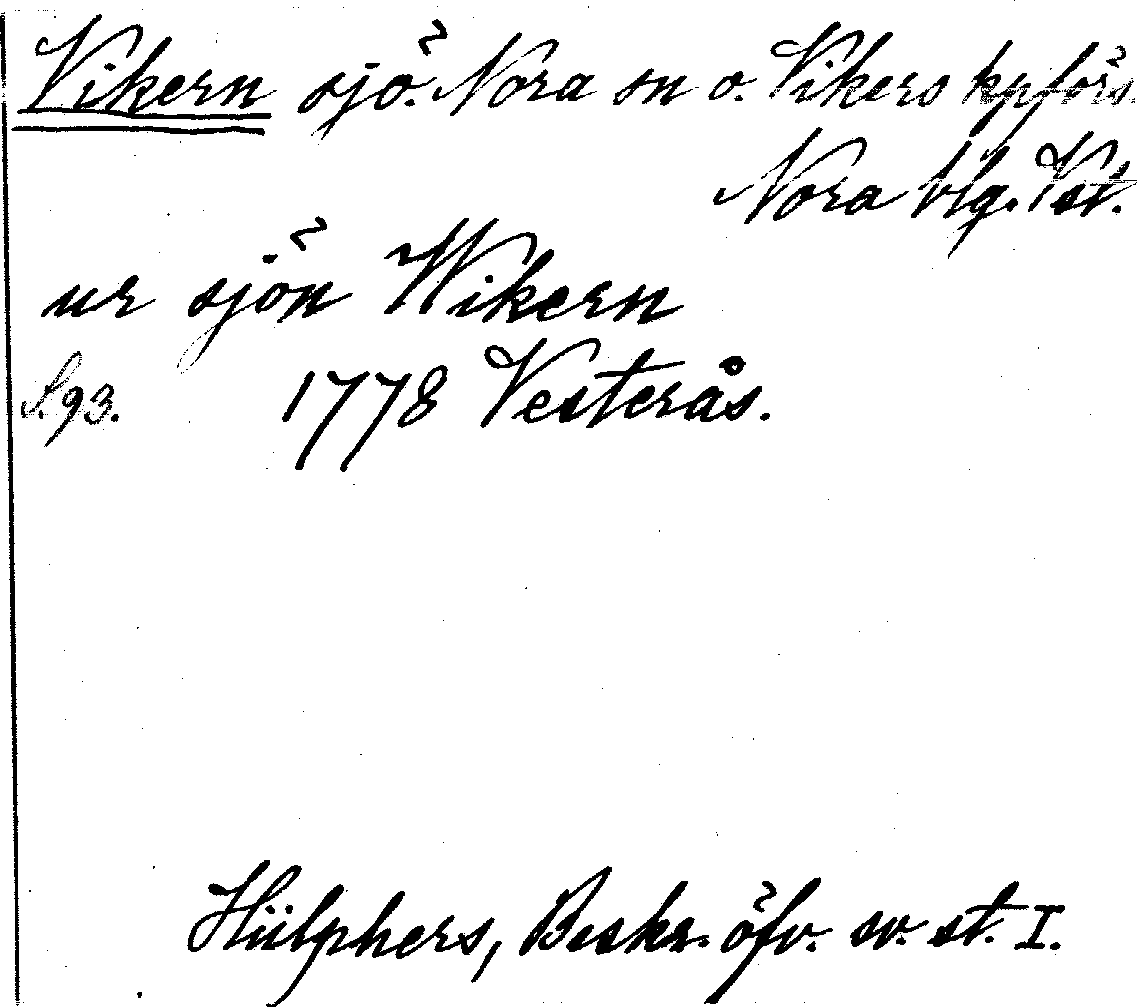 Vikern sjö. Nora sn o. Vikers kpförs.
Nora blg. Vst.
ur sjön Wikern
S. 93. 1778 Vesterås.
Hülphers, Beskr. öfv. sv. st. I.